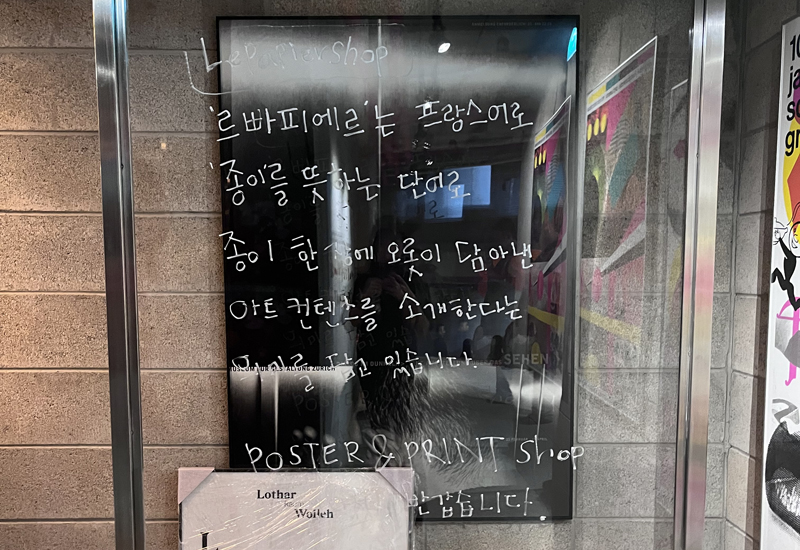 '르빠피에르'는 프랑스어로
'종이'를 뜻하는 단어로
종이 한 장에 오롯이 담아낸
아트 컨텐츠를 소개한다는
담고 있습니다.
POSTER & PRINT Shop
반갑습니다.
SEHEN
Lothar
Wolleh